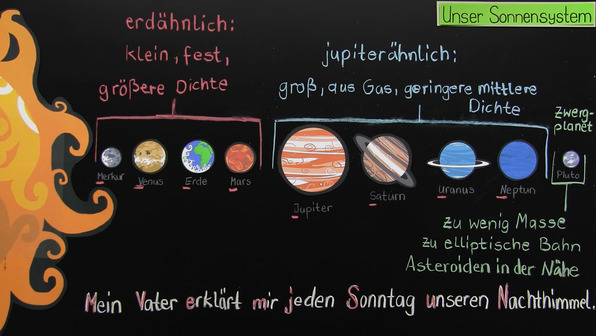 Unser Sonnensystem
erdähnlich:
klein, fest,
größere Dichte
jupiterähnlich:
groß, aus Gas, geringere mittlere
Dichte
Zwerg-
planet
Merkur
Venus
Erde
Mars
Jupiter
Saturn
Uranus
Neptun
Pluto
zu wenig Masse
zu elliptische Bahn
Asteroiden in der Nähe
Mein Vater erklärt mir jeden Sonntag unseren Nachthimmel.